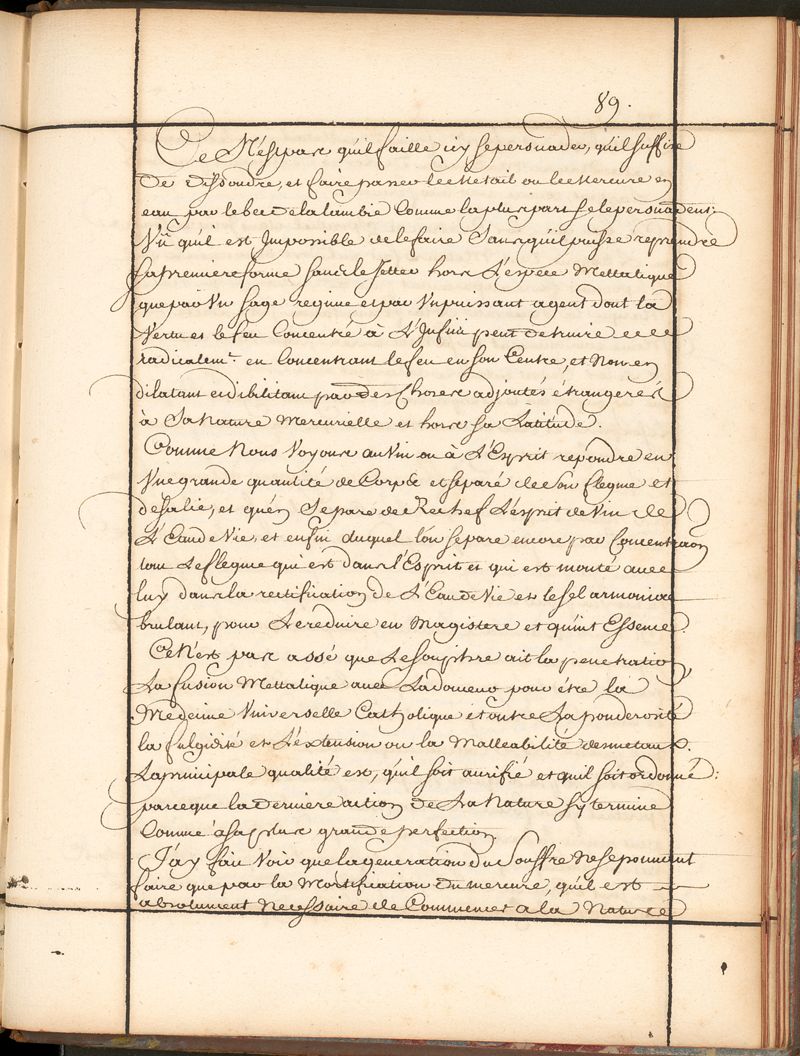 89.
Ce N'est pas qu'il faille icy se persuader, qu'il suffise
de dissoudre, et faire passer le Metail ou le Mercure en
eau par le bec de la lambic Comme la plus part se le persuadent;
Vû qu'il est Impossible de le faire Sans qu'il puisse reprendre
sa premiere forme sans le Jetter hors L'espece Mettalique
que par Vn sage regime et par Vn puissant agent dont la
Vertu et le feu Concentré à L'Infini peut detruire
radicalemt. en Concentrant le feu en son Centre, et Non en
dilatant en dibilitant par des Choses adjoutés étrangeres
à Sa Nature Mercurielle et hors sa Latitude.
Comme Nous Voyons au Vin ou à L'Esprit repondre en
Vne grande quantité de Corps et separé de son flegme et
de sa lie, et qu'en Separe de Rechef L'esprit de Vin de
L'Eau de Vie, et enfin duquel l'on separe encore par Concentraon
tout Le flegme qui est dans l'Esprit et qui est monté avec
luy dans la rectification de L'Eau de Vie et le sel armoniac
brulant, pour Le reduire en Magistere et quint Essence.
Ce N'est pas assé que Le souphre ait la penetration,
La fusion Mettalique avec pour étre la
Medecine Vniverselle Catholique et outre La ponderosité
la fulgidité et L'éxtension ou la Malleabilité des metaux.
La principale qualité est, qu'il soit aurifié et qu'il soit ordonné:
parceque la derniere action de La Nature s'y termine
Comme à sa plus grande perfection
J'ay fait Voir que la generation du Souffre ne se pouvant
faire que par la Mortification du mercure, qu'il est
absolument Necessaire de Commencer a la Nature